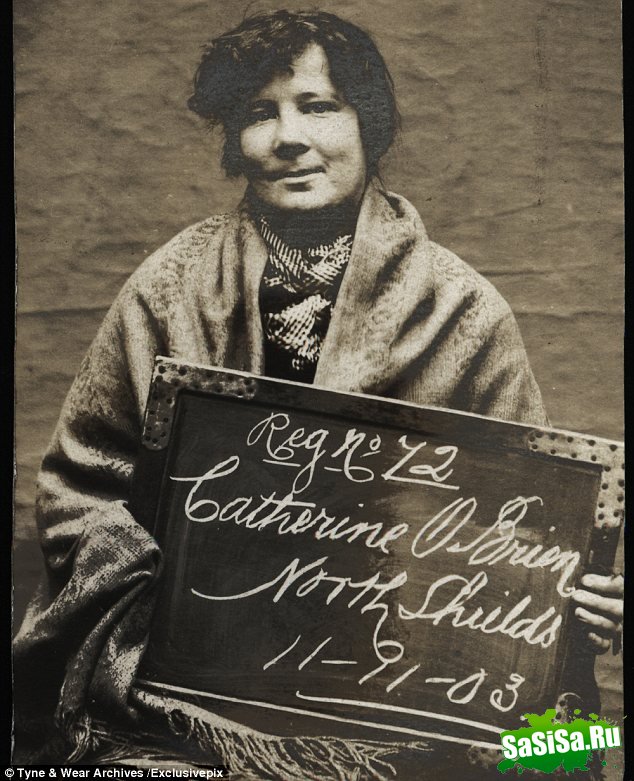 Reg no 72
Catherine O'Brien
North Shields
11-91-03
© Tyne & Wear Archives /Exclusivepix
SaSiSa.Ru